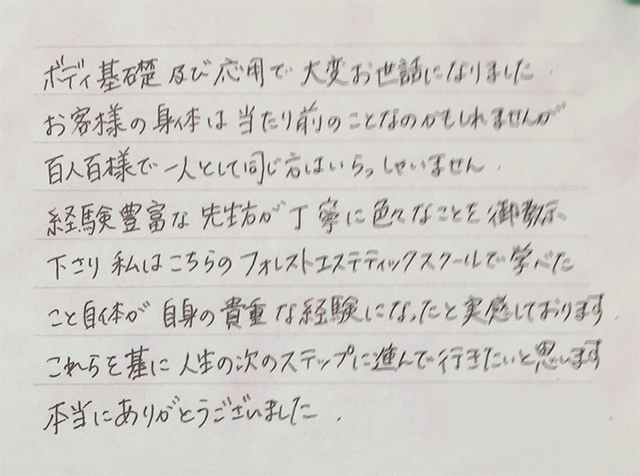 ボディ基礎及び応用で大変お世話になりました
お客様の身体は当たり前のことなのかもしれませんが
百人百様で一人として同じ方はいらっしゃいません.
経験豊富な先生方が丁寧に色々なことを御教示
下さり私はこちらのフォレストエステティックスクールで学べた
こと自体が自身の貴重な経験になったと実感しております
これらを基に人生の次のステップに進んで行きたいと思います
本当にありがとうございました.